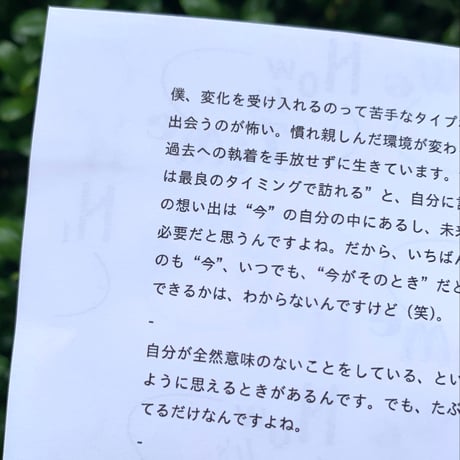 僕、変化を受け入れるのって苦手なタイプ
出会うのが怖い。慣れ親しんだ環境が変わ
過去への執着を手放せずに生きています。
は最良のタイミングで訪れる”と、自分に
の想い出は“今”の自分の中にあるし、未来
必要だと思うんですよね。だから、いちばん
のも“今”、いつでも、“今がそのとき”だと
できるかは、わからないんですけど（笑）。
-
自分が全然意味のないことをしている、とい
ように思えるときがあるんです。でも、たぶ
てるだけなんですよね。
-